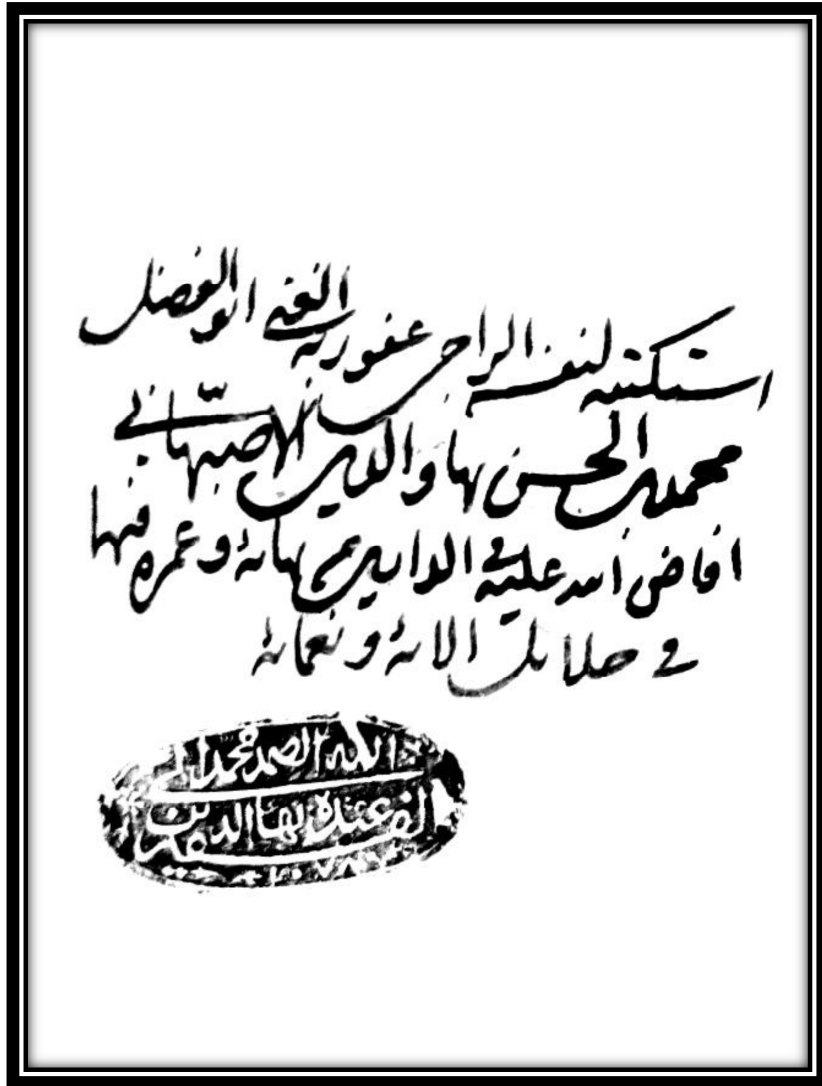 استكتبه لنفسه الراجي عفو ربه الغني ابو الفضل
محمد بن الحسن بهاء الدين الاصبهاني
افاض الله عليه في الدارين من بهائه وعمره فيها
في جلابيب الائه ونعمائه
الله الصمد محمد
الفقير عبده بهاء الدين